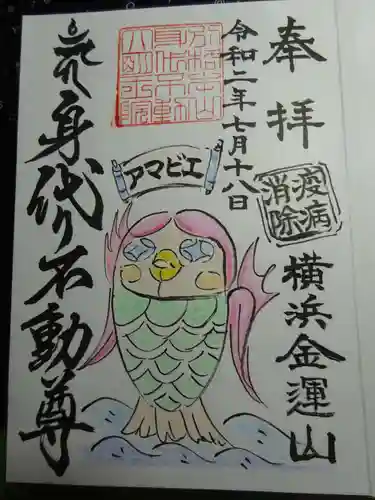 奉拝
疫病
消除
横浜金運山
令和二年七月十八日
アマビエ
身代り不動尊